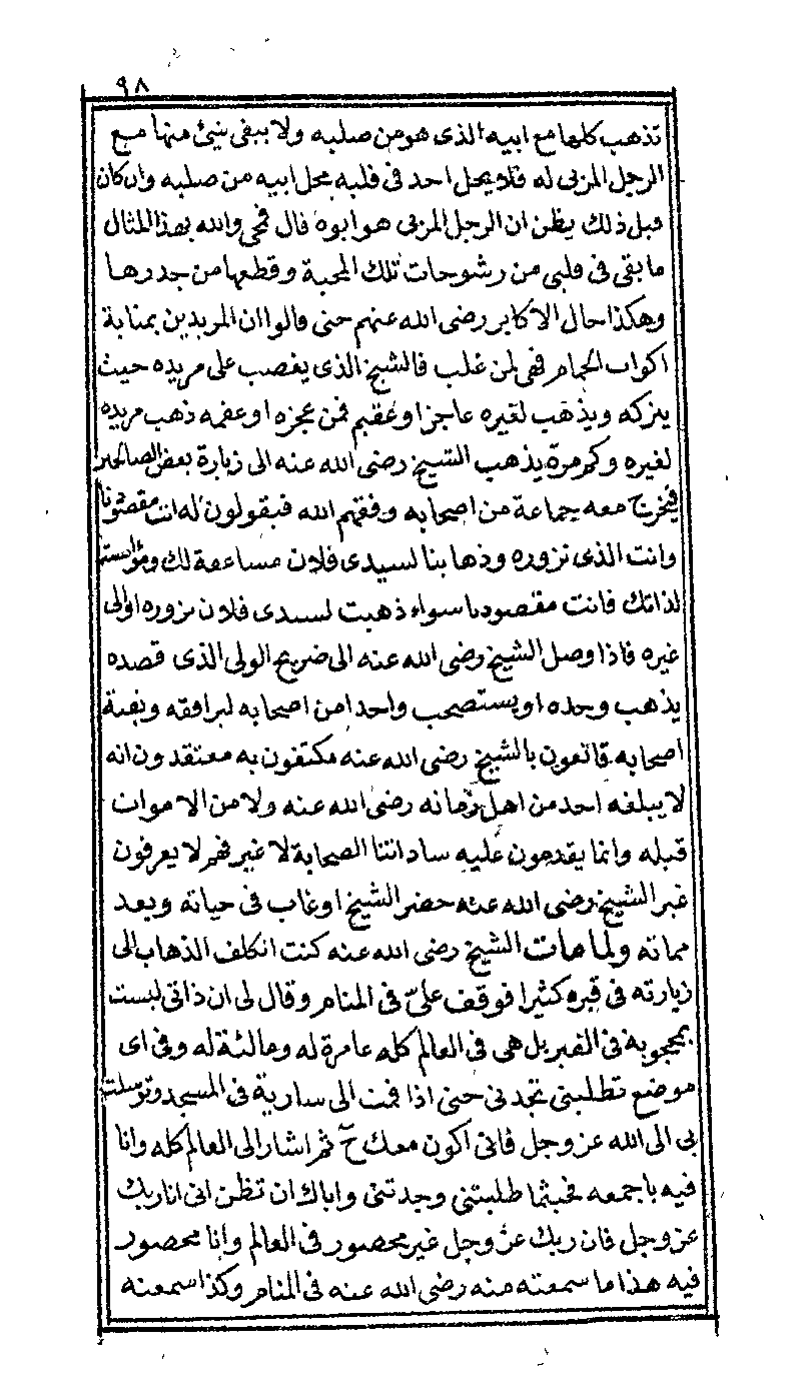 ٩٨
تذهب كلها مع ابيه الذى هو من صلبه ولا يبقى شئ منها مع
الرجل المربى له فلا يحل احد فى قلبه محل ابيه من صلبه وان كان
قبل ذلك يظن ان الرجل المربى هو ابوه قال فمحى والله بهذا المثال
ما بقى فى قلبى من رشوحات تلك المحبة وقطعها من جدرها
وهكذا حال الاكابر رضى الله عنهم حتى قالوا ان المريدين بمثابة
اكواب الحمام فهى لمن غلب فالشيخ الذى يغصب على مريده حيث
يتركه ويذهب لغيره عاجز او عقيم فمن عجزه او عقمه ذهب مريده
لغيره وكم مرة يذهب الشيخ رضى الله عنه الى زيارة بعض الصالحين
فيخرج معه جماعة من اصحابه وفقهم الله فيقولون له انت مقصودنا
وانت الذى نزوره وذهابنا لسيدى فلان مساعفة لك ومؤانسة
لذاتك فانت مقصودنا سواء ذهبت لسيدى فلان نزوره او الى
غيره فاذا وصل الشيخ رضى الله عنه الى ضريح الولى الذى قصده
يذهب وحده او يستصحب واحدا من اصحابه ليرافقه وبقية
اصحابه قانعون بالشيخ رضى الله عنه مكتفون به معتقدون انه
لا يبلغه احد من اهل زمانه رضى الله عنه ولا من الاموات
قبله وانما يقدمون عليه ساداتنا الصحابة لا غير فهم لا يعرفون
غير الشيخ رضى الله عنه حضر الشيخ او غاب فى حياته وبعد
مماته ولما مات الشيخ رضى الله عنه كنت اتكلف الذهاب الى
زيارته فى قبره كثيرا فوقف علىّ فى المنام وقال لى ان ذاتى ليست
بمحجوبة فى القبر بل هى فى العالم كله عامرة له ومالئة له وفى اى
موضع تطلبنى تجدنى حتى اذا قمت الى سارية فى المسجد وتوسلت
بى الى الله عز وجل فانى اكون معك ح ثم اشار الى العالم كله وانا
فيه باجمعه فحيثما طلبتنى وجدتنى واياك ان تظن انى انا ربك
عز وجل فان ربك عز وجل غير محصور فى العالم وانا محصور
فيه هذا ما سمعته منه رضى الله عنه فى المنام وكذا سمعته